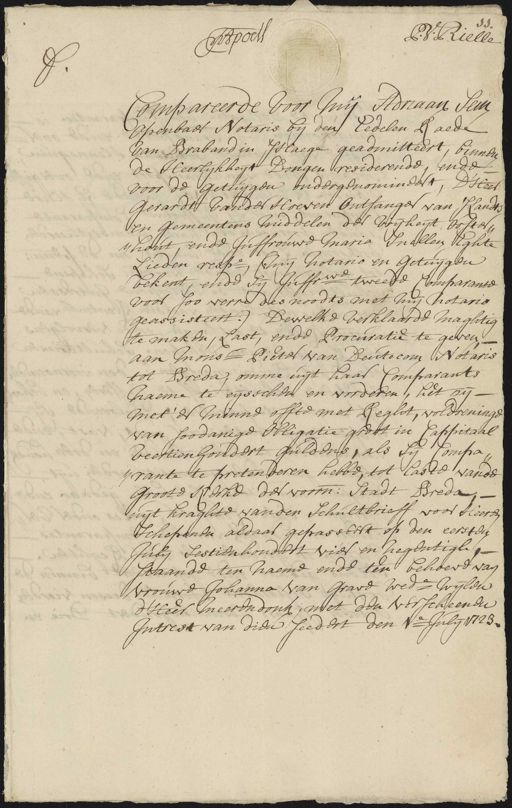 33.
P: V: Rielle
Compareerde voor mij Adriaan
openbaer Notaris bij den Eedelen Raede
van Braband in Hage geadmitteert, binnen
de Heerlijkheyt Dongen resideerende, ende
voor de getuygen ondergenomineert, D'Heer
Gerardt vander Hoeven Ontfanger van 'Slandts
en gemeentens middelen der vrijheyt Ooster„
„hout, ende Juffrouwe Maria Snellen Eghte
Lieden resp:e mij notario en getuygen
bekent, ende sij Juffr:we tweede Comparante
voor soo verre des noodts met mij notario
geassisteert.) Dewelke verklaarde maghtig
te maken, Last, ende Procuratie te geven,
aan Mons:r Pieter van Notaris
tot Breda, omme uyt haer Comparants
naeme te eysschen en vorderen, het zij
met'er minne offte met Reght, voldoeninge
van soodanige Obligatie groot in Cappitaal
veertien hondert guldens, als sij Compa„
„rante te pretenderen hebbe, tot Laste vande
Groote Kerke der voorn: Stadt Breda,
uyt kraghte vanden Schultbrieff voor Heeren
Schepenen aldaer gepasseert op den eersten
July sestienhondert vier en neghentigh,
staande ten naeme ende ten behoeve van
vrouwe Johanna van Grave wed:e wijlen
d'Heer Neerendonk, met den verscheenen
Intrest van dien sedert den 1:en July 1723.